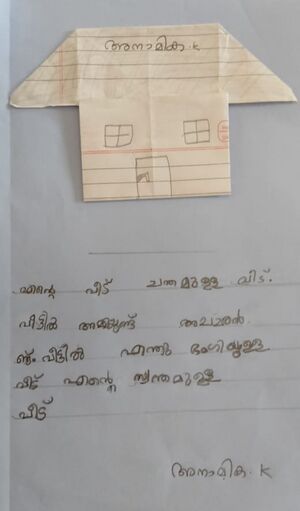 അനാമിക. k
എന്റെ വീട് ചന്തമുള്ള വീട്.
വീട്ടിൽ അമ്മയുണ്ട് അച്ഛൻ
ണ്ടും. വീട്ടിൽ എന്തു ഭംഗിയുള്ള
വീട് എന്റെ സ്വന്തമുള്ള
വീട്
അനാമിക. k